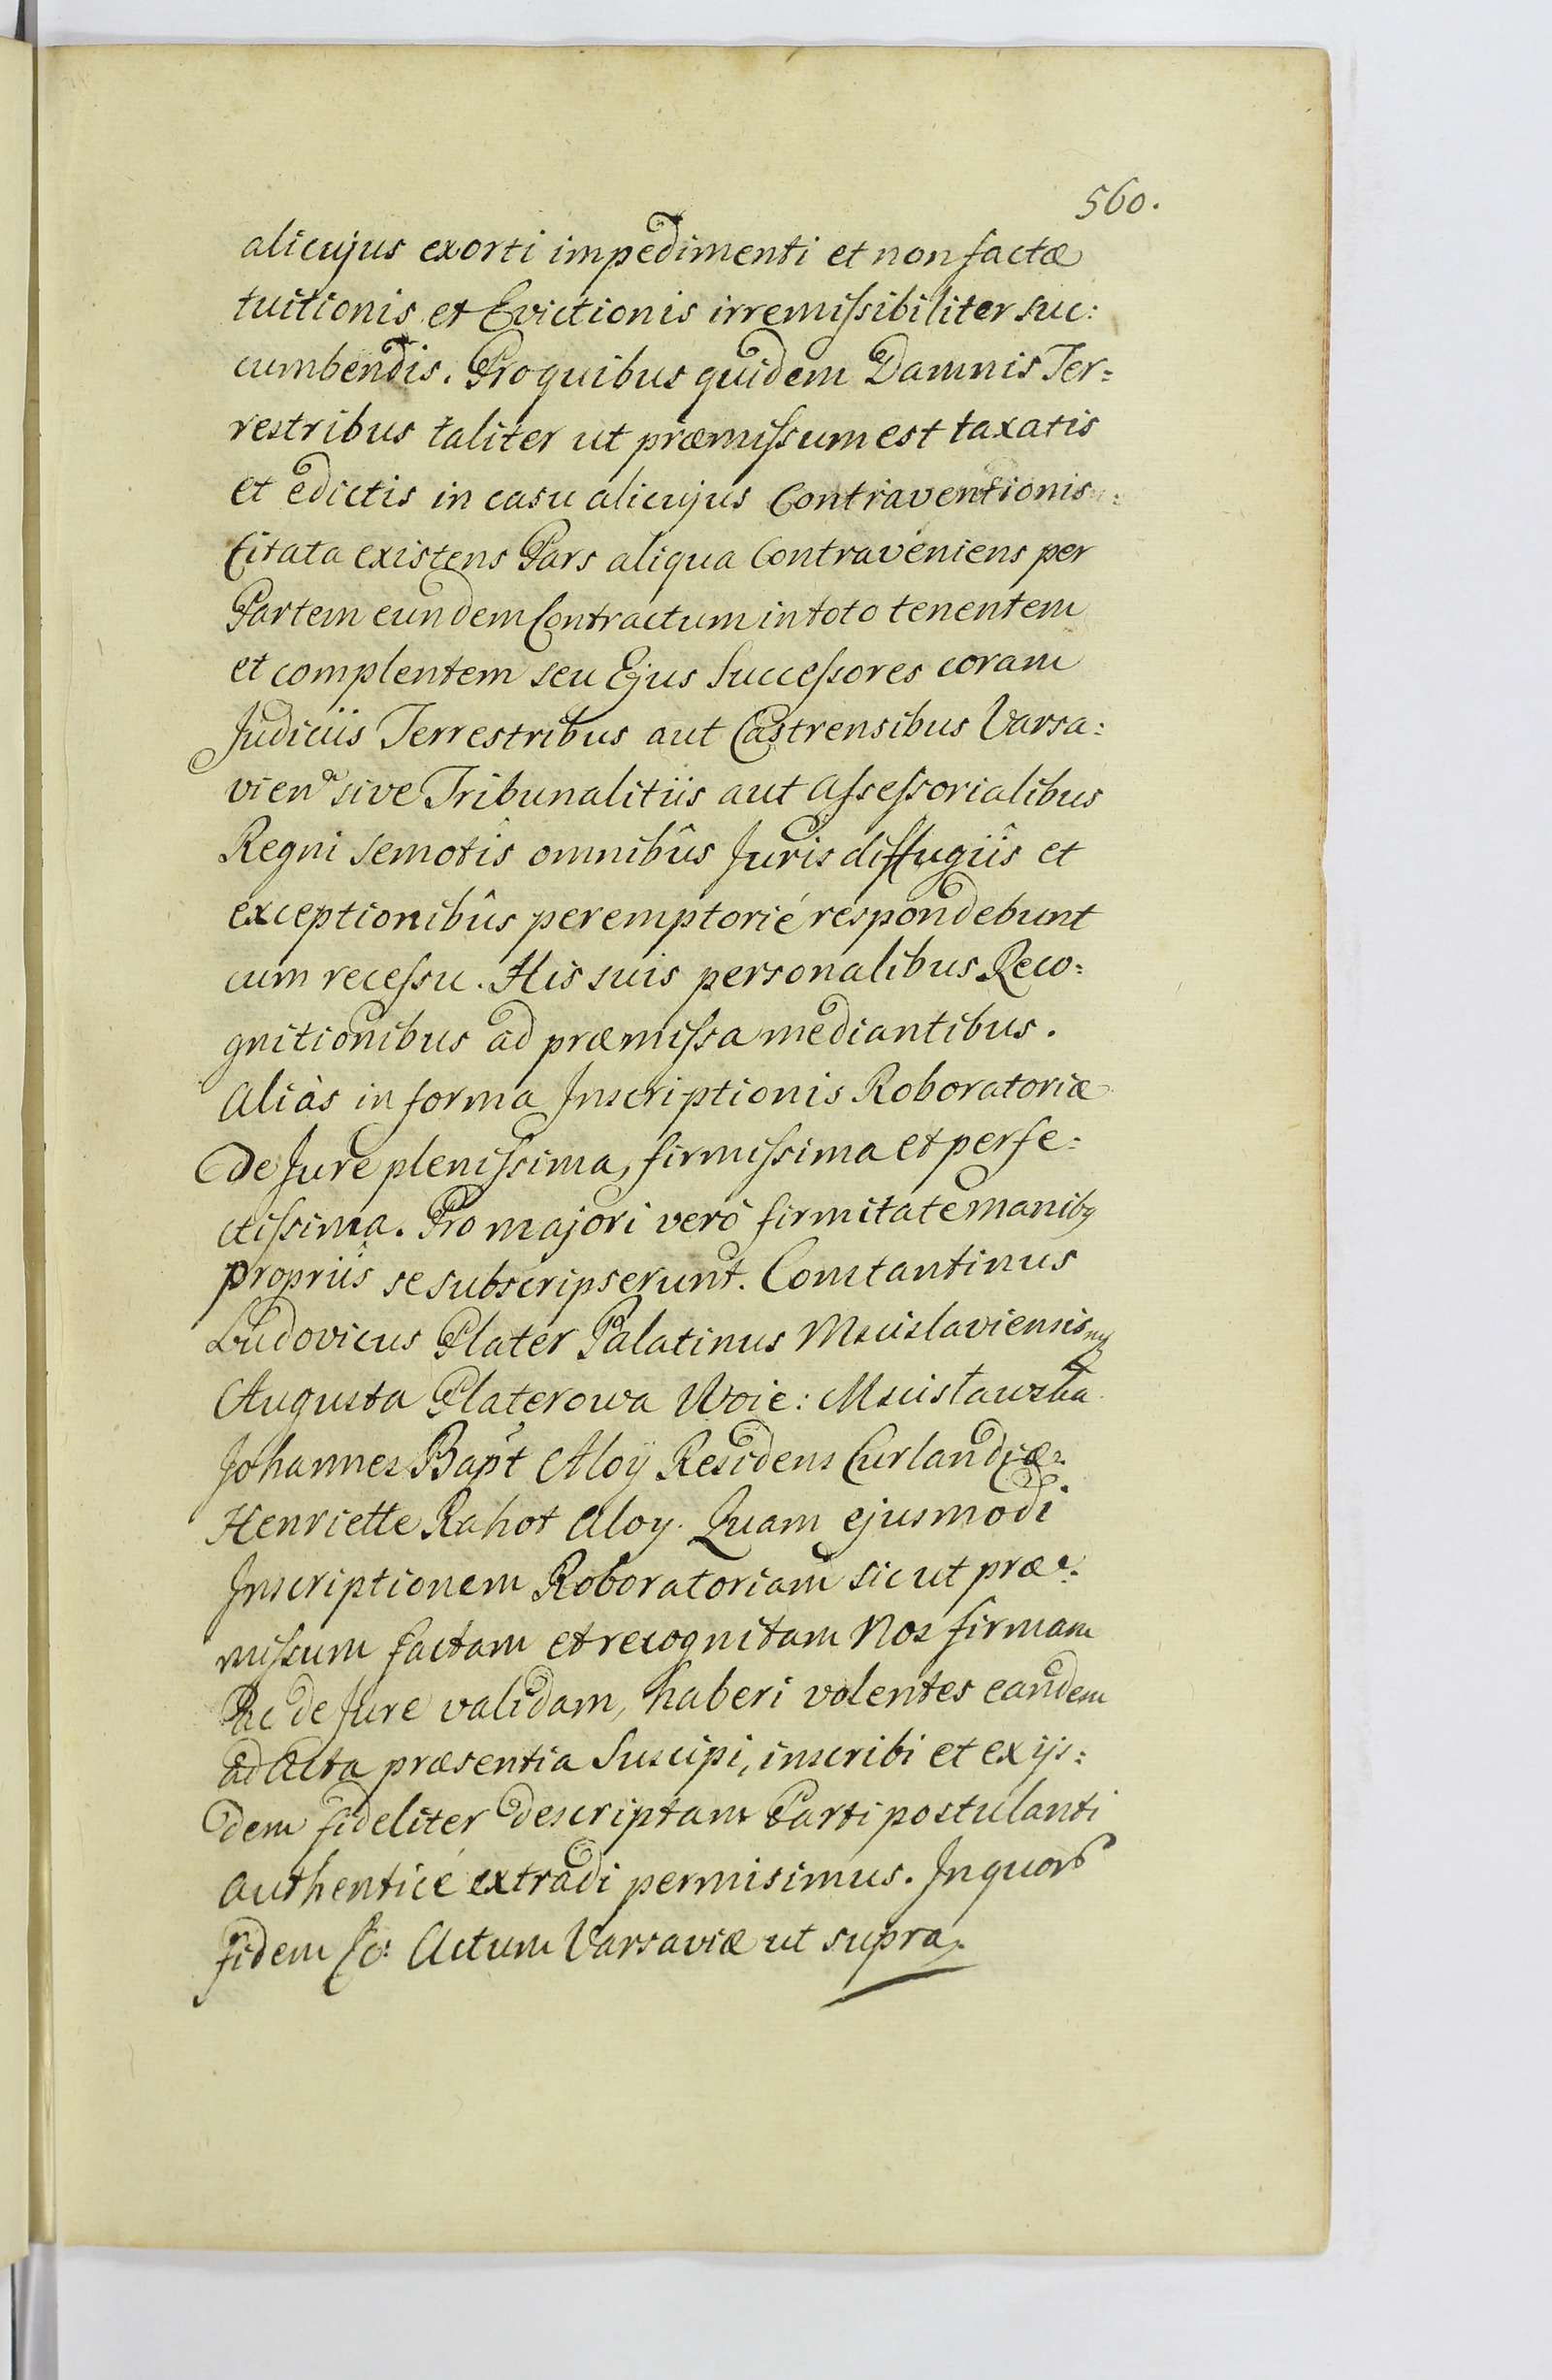 560.
alicujus exorti impedimenti et non factæ
tuitionis et Evictionis irremiſsibiliter suc:
cumbendis. Pro quibus quidem Damnis Ter=
restribus taliter ut præmiſsum est taxatis
et edictis in casu alicujus Contraventionis
Citata existens Pars aliqua Contraveniens per
Partem eundem Contractum in toto tenentem
et complentem seu Ejus Succeſsores coram
Judiciis Terrestribus aut Castrensibus Varsa:
vien sive Tribunalitiis aut Aſseſsorialibus
Regni semotîs omnibûs Juris diffugiîs et
exceptionibûs peremptorié respondebunt
cum receſsu. His suis personalibus Reco=
gnitionibus ad præmiſsa mediantibus.
Aliàs in forma Inscriptionis Roboratoriæ
de Jure pleniſsima, firmiſsima et perfe=
ctiſsima. Pro majori verò firmitate manibq
propriîs se subscripserunt. Constantinus
Ludovicus Plater Palatinus Mscislaviensis
Augusta Platerowa Woie: Mscisławska
Johannes Bapt Aloy Residens Curlandiæ
Henriette Rahot Aloy. Quam ejusmodi
Inscriptionem Roboratoriam sicut præ=
miſsum factam et recognitam Nos firmam
ac de Jure validam, haberi volentes eandem
ad Acta præsentia Suscipi, inscribi et ex ijs=
dem fideliter descriptam Parti postulanti
authenticé extradi permisimus. In quor
fidem Actum Varsaviæ ut supra.